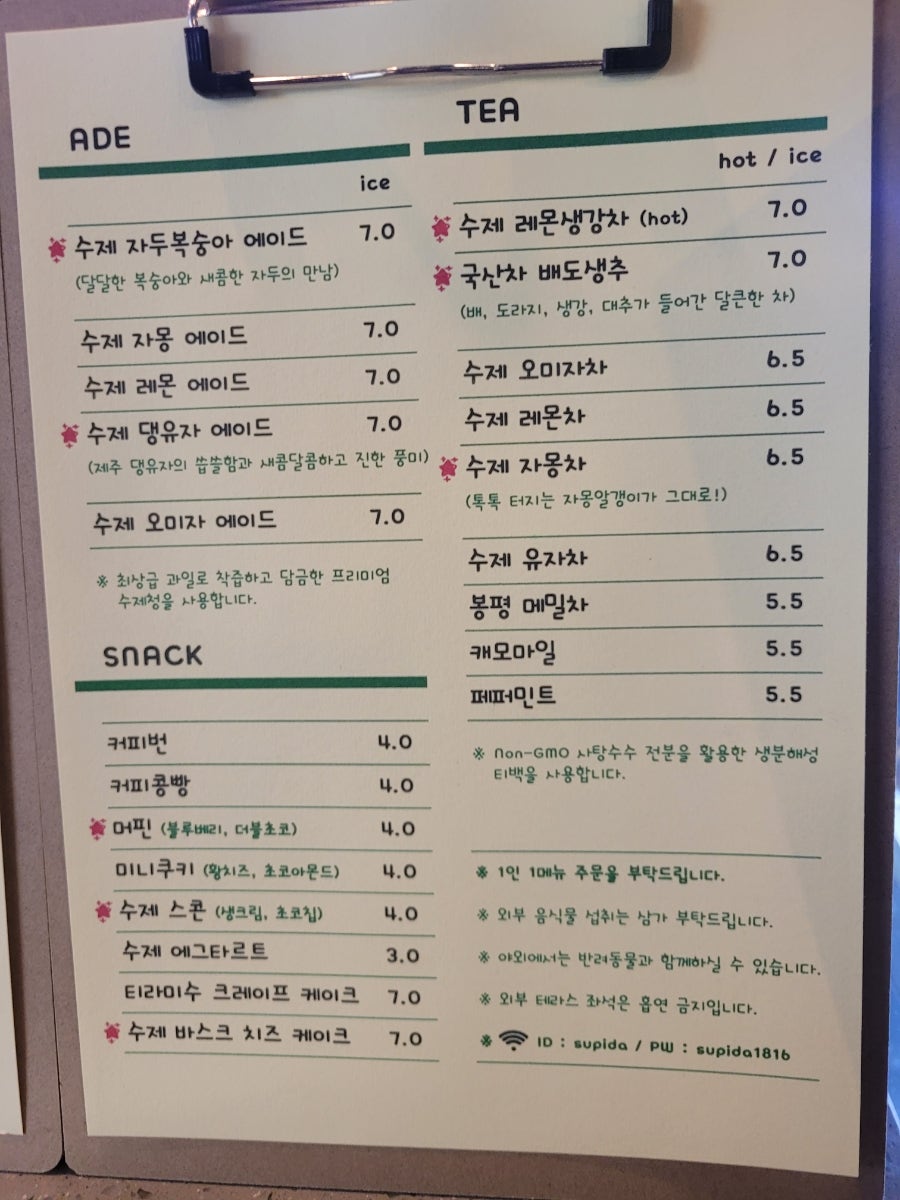 ADE
ice
수제 자두복숭아 에이드 7.0
(달달한 복숭아와 새콤한 자두의 만남)
수제 자몽 에이드 7.0
수제 레몬 에이드 7.0
수제 댕유자 에이드 7.0
(제주 댕유자의 씁쓸함과 새콤달콤하고 진한 풍미)
수제 오미자 에이드 7.0
※ 최상급 과일로 착즙하고 담금한 프리미엄
수제청을 사용합니다.
SNACK
커피번 4.0
커피콩빵 4.0
머핀 (블루베리, 더블초코) 4.0
미니쿠키 (황치즈, 초코아몬드) 4.0
수제 스콘 (생크림, 초코칩) 4.0
수제 에그타르트 3.0
티라미수 크레이프 케이크 7.0
수제 바스크 치즈 케이크 7.0
TEA
hot / ice
수제 레몬생강차 (hot) 7.0
국산차 배도생추 7.0
(배, 도라지, 생강, 대추가 들어간 달큰한 차)
수제 오미자차 6.5
수제 레몬차 6.5
수제 자몽차 6.5
(톡톡 터지는 자몽알갱이가 그대로!)
수제 유자차 6.5
봉평 메밀차 5.5
캐모마일 5.5
페퍼민트 5.5
※ Non-GMO 사탕수수 전분을 활용한 생분해성
티백을 사용합니다.
※ 1인 1메뉴 주문을 부탁드립니다.
※ 외부 음식물 섭취는 삼가 부탁드립니다.
※ 야외에서는 반려동물과 함께하실 수 있습니다.
※ 외부 테라스 좌석은 흡연 금지입니다.
※ ID : supida / PW : supida1816